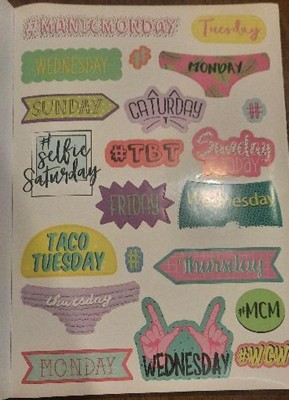 #MANICMONDAY
Tuesday
WEDNESDAY
#
MONDAY
SUNDAY
CATURDAY
#
#
Selfie
Saturday
#TBT
Sunday
FUNDAY
FRIDAY
Wednesday
TACO
TUESDAY
#
#Thursday
thursday
#MCM
MONDAY
WEDNESDAY
#WCW